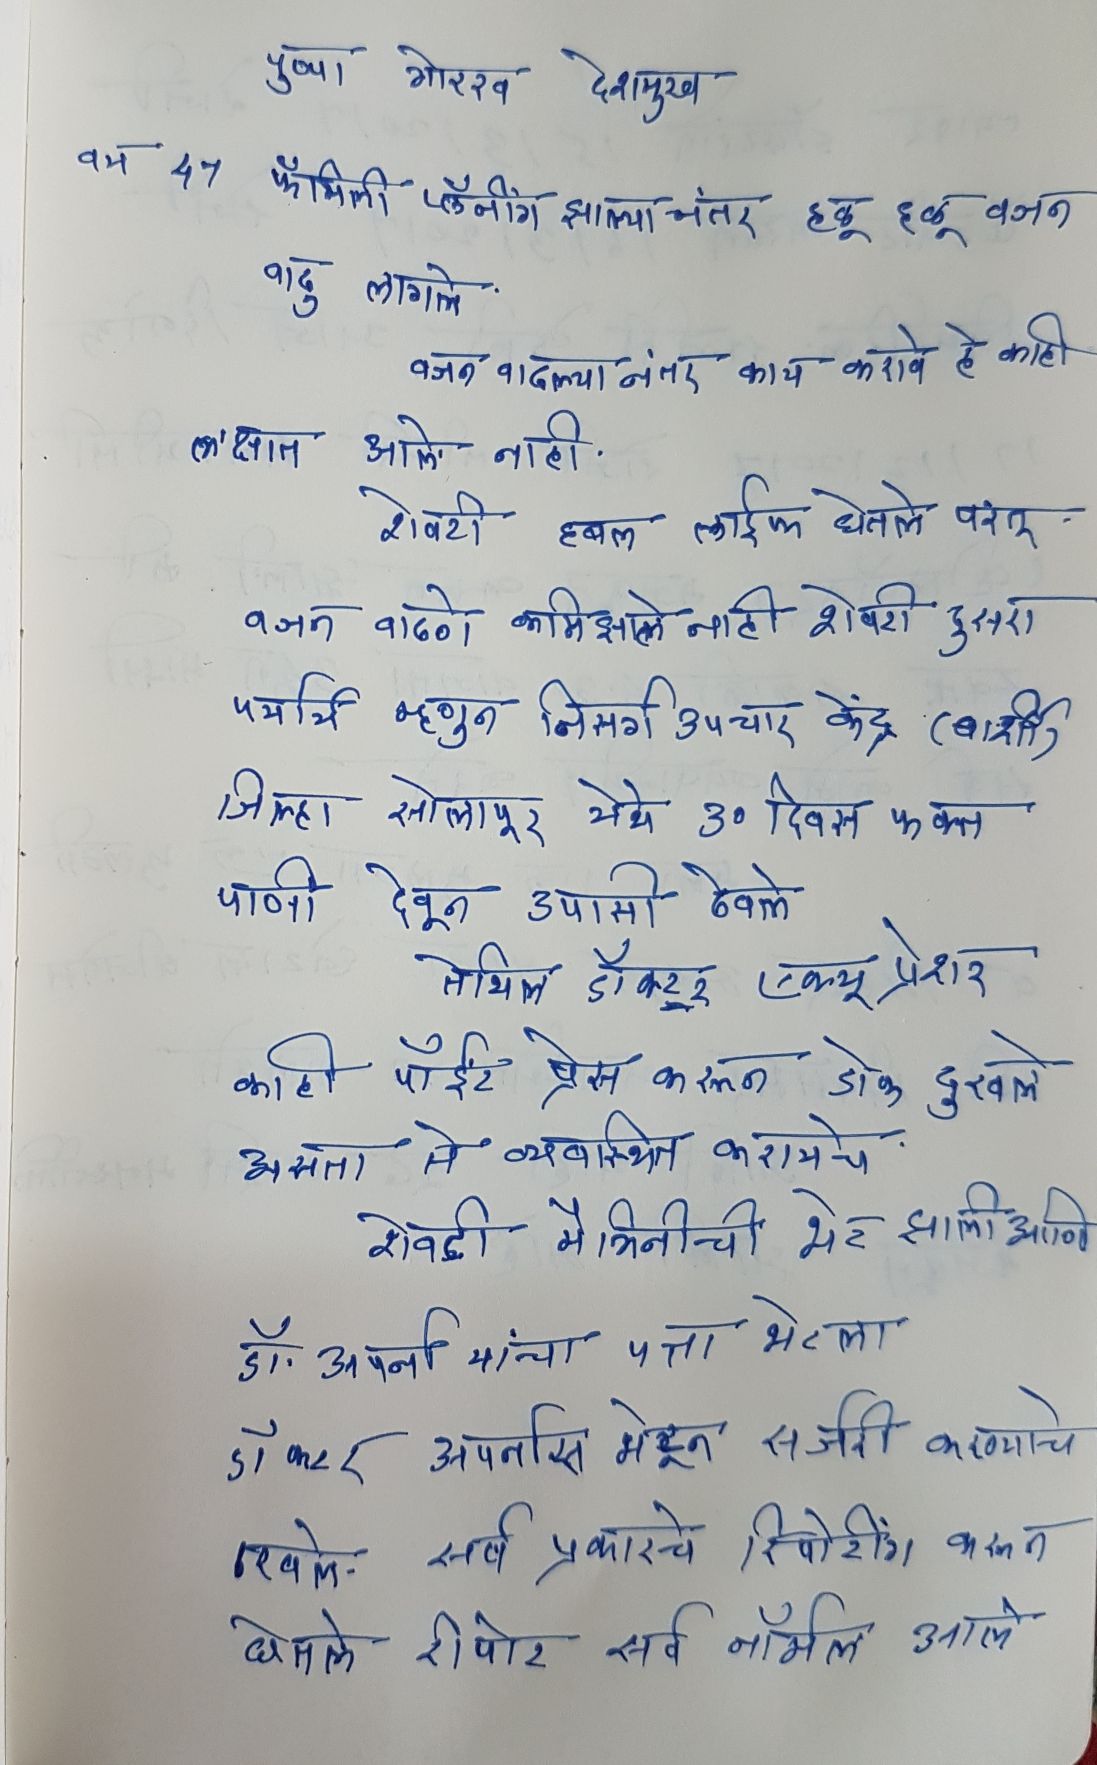 पुष्पा गोरख देशमुख
वय 47 फॅमिली प्लॅनींग झाल्या नंतर हळू हळू वजन
वाढु लागले.
वजन वाढल्या नंतर काय करावे हे काही
लक्षात आले नाही.
शेवटी हबल लाईफ घेतले परंतू
वजन वाढणे कमि झाले नाही शेवटी दुसरा
पर्याय म्हणुन निसर्ग उपचार केंद्र (बार्शी)
जिल्हा सोलापूर येथे 30 दिवस फक्त
पाणी देवून उपासी ठेवले
तेथिल डॉक्टर एक्यू प्रेशर
काही पॉईंट प्रेस करून डोक दुखले
असता ते व्यवस्थित करायचे.
शेवटी मैत्रिनीची भेट झाली आणि
डॉ. अपर्ना यांचा पत्ता भेटला
डॉक्टर अपर्नास भेटून सर्जरी करण्याचे
ठरवले. सर्व प्रकारचे रिपोर्टींग करून
घेतले रीपोर्ट सर्व नॉर्मल आले